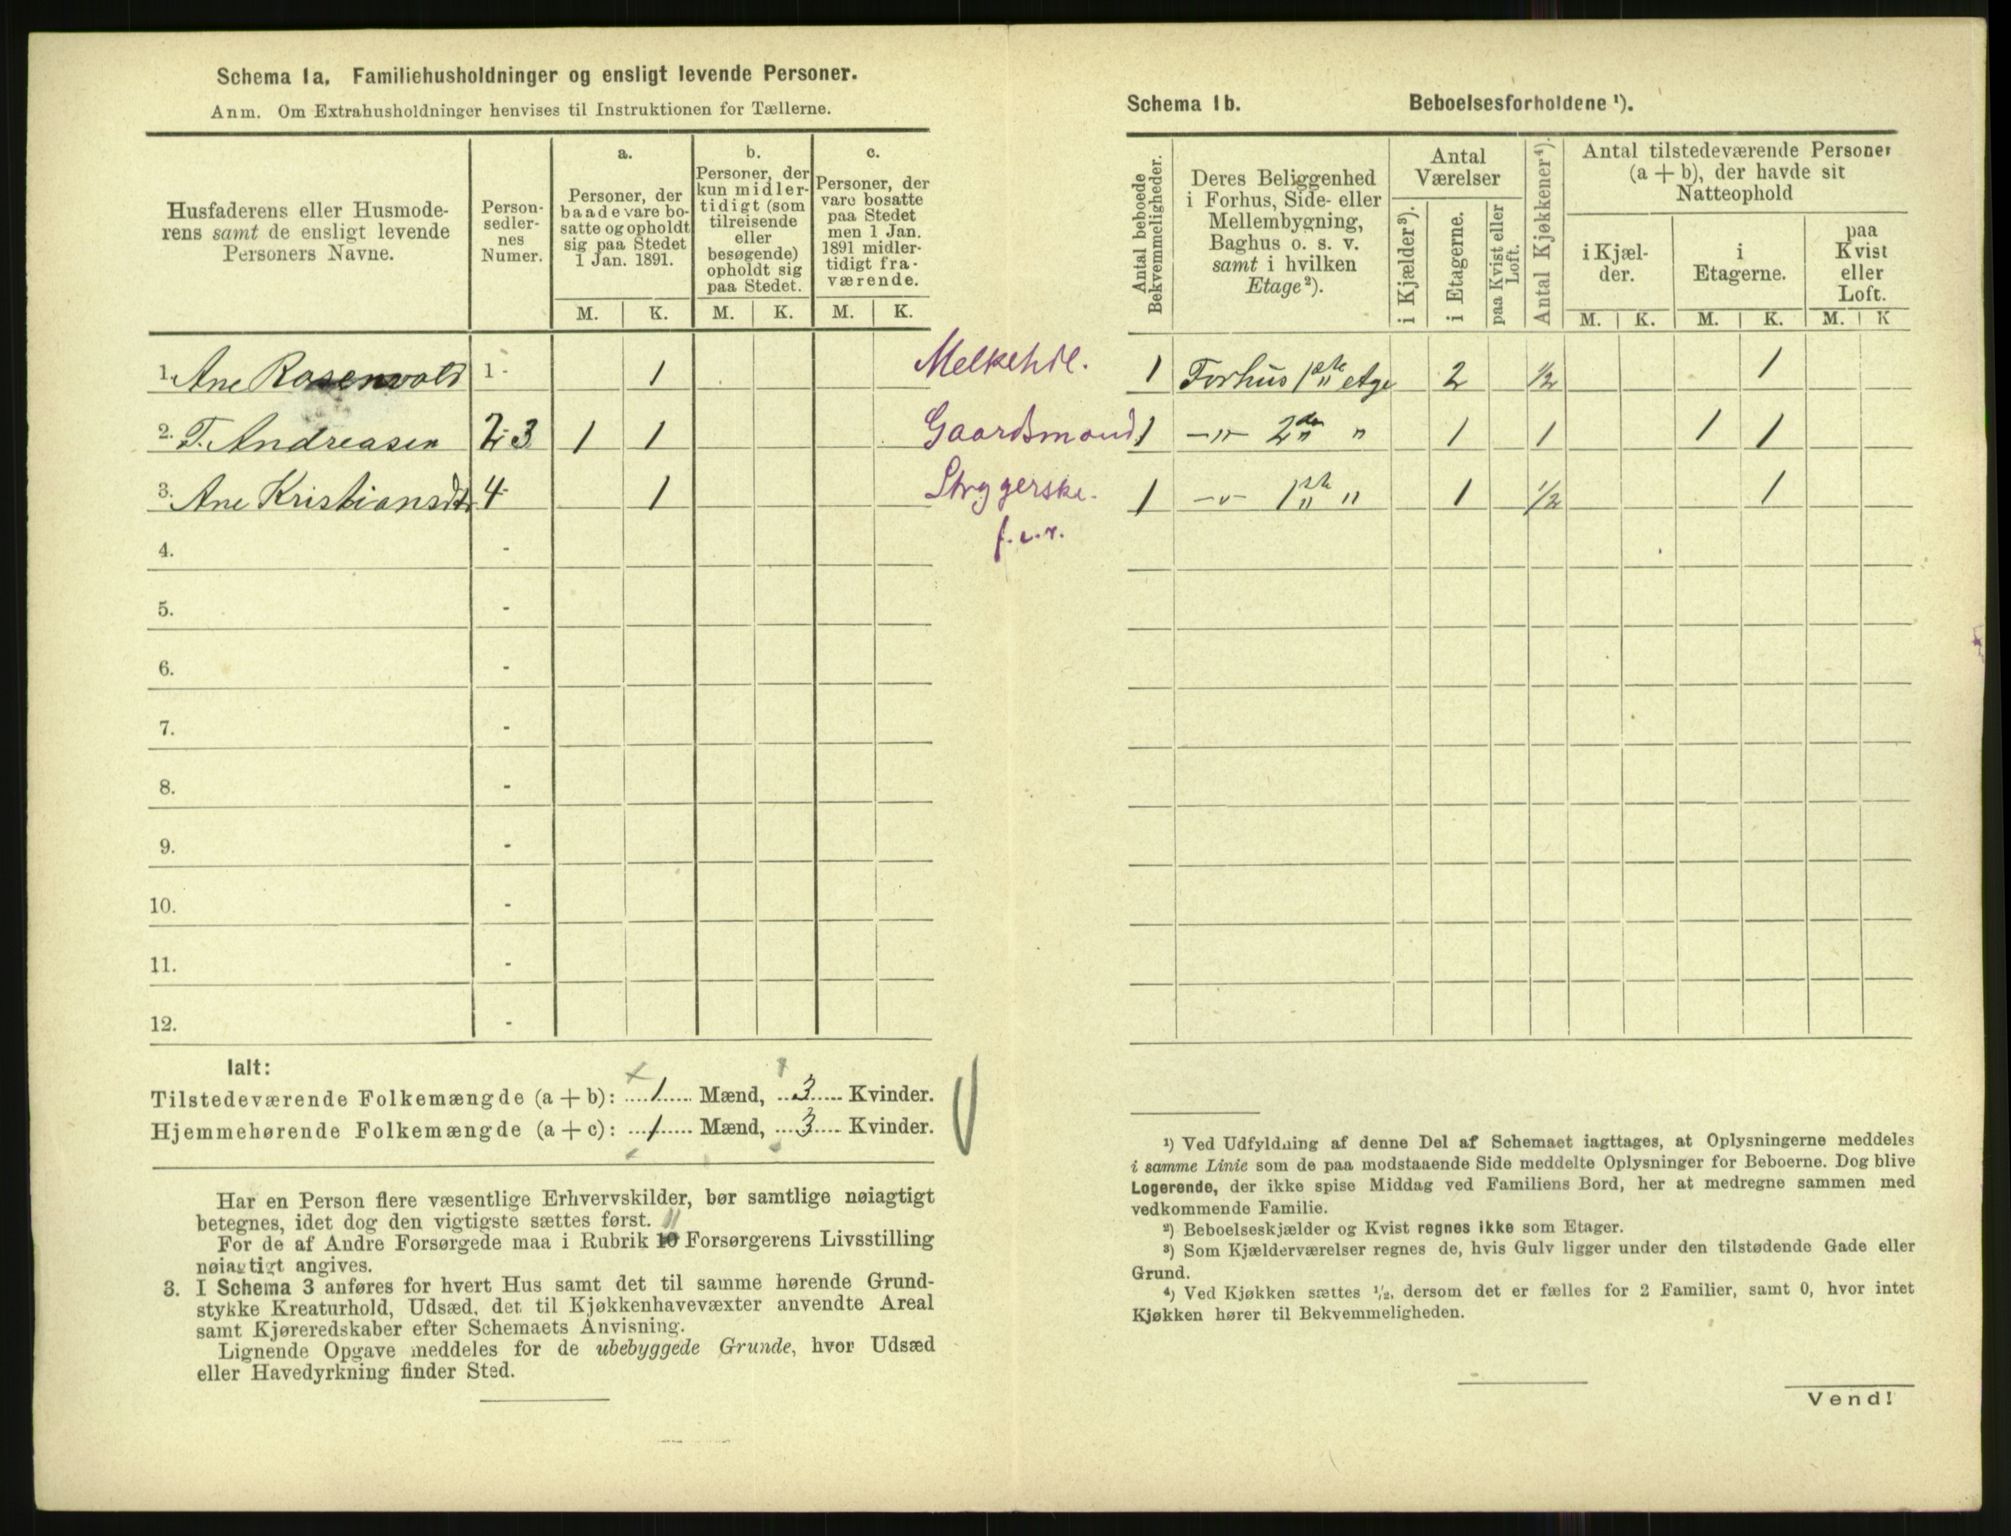 Schema 1a. Familiehusholdninger og ensligt levende Personer.
Anm. Om Extrahusholdninger henvises til Instruktionen for Tællerne.
Husfaderens eller Husmode-
rens samt de ensligt levende
Personers Navne.
Person-
sedler-
nes
Numer.
a.
Personer, der
baade vare bo-
satte og opholdt
sig paa Stedet
1 Jan. 1891.
b.
Personer, der
kun midler-
tidigt (som
tilreisende
eller
besøgende)
opholdt sig
paa Stedet.
c.
Personer, der
vare bosatte
paa Stedet
men 1 Jan.
1891 midler-
tidigt fra-
værende.
M. K. M. K. M. K.
1. Ane Rosenvold 1- 1 Melkehdl.
2. T. Andreasen 2-3 1 1 Gaardsmand
3. Ane Kristiansdtr 4- 1 Strygerske.
f.v.r.
4. -
5. -
6. -
7. -
8. -
9. -
10. -
11. -
12. -
Ialt:
Tilstedeværende Folkemængde (a + b): 1 Mænd, 3 Kvinder.
Hjemmehørende Folkemængde (a + c): 1 Mænd, 3 Kvinder.
Har en Person flere væsentlige Erhvervskilder, bør samtlige nøiagtigt
betegnes, idet dog den vigtigste sættes først.
11
For de af Andre Forsørgede maa i Rubrik 10 Forsørgerens Livsstilling
nøiagtigt angives.
3. I Schema 3 anføres for hvert Hus samt det til samme hørende Grund-
stykke Kreaturhold, Udsæd, det til Kjøkkenhavevæxter anvendte Areal
samt Kjøreredskaber efter Schemaets Anvisning.
Lignende Opgave meddeles for de ubebyggede Grunde, hvor Udsæd
eller Havedyrkning finder Sted.
Schema 1b. Beboelsesforholdene ¹).
Antal beboede
Bekvemmeligheder.
Deres Beliggenhed
i Forhus, Side- eller
Mellembygning,
Baghus o. s. v.
samt i hvilken
Etage²).
Antal
Værelser
i Kjælder³).
i Etagerne.
paa Kvist eller
Loft.
Antal Kjøkkener⁴).
Antal tilstedeværende Personer
(a + b), der havde sit
Natteophold
i Kjæl-
der.
i
Etagerne.
paa
Kvist
eller
Loft.
M. K. M. K. M. K
1 Forhus 1ste etge 2 ½ 1
1 -"- 2den " 1 1 1 1
1 -"- 1ste " 1 ½ 1
¹) Ved Udfyldning af denne Del af Schemaet iagttages, at Oplysningerne meddeles
i samme Linie som de paa modstaaende Side meddelte Oplysninger for Beboerne. Dog blive
Logerende, der ikke spise Middag ved Familiens Bord, her at medregne sammen med
vedkommende Familie.
²) Beboelseskjælder og Kvist regnes ikke som Etager.
³) Som Kjælderværelser regnes de, hvis Gulv ligger under den tilstødende Gade eller
Grund.
⁴) Ved Kjøkken sættes ½, dersom det er fælles for 2 Familier, samt 0, hvor intet
Kjøkken hører til Bekvemmeligheden.
Vend!